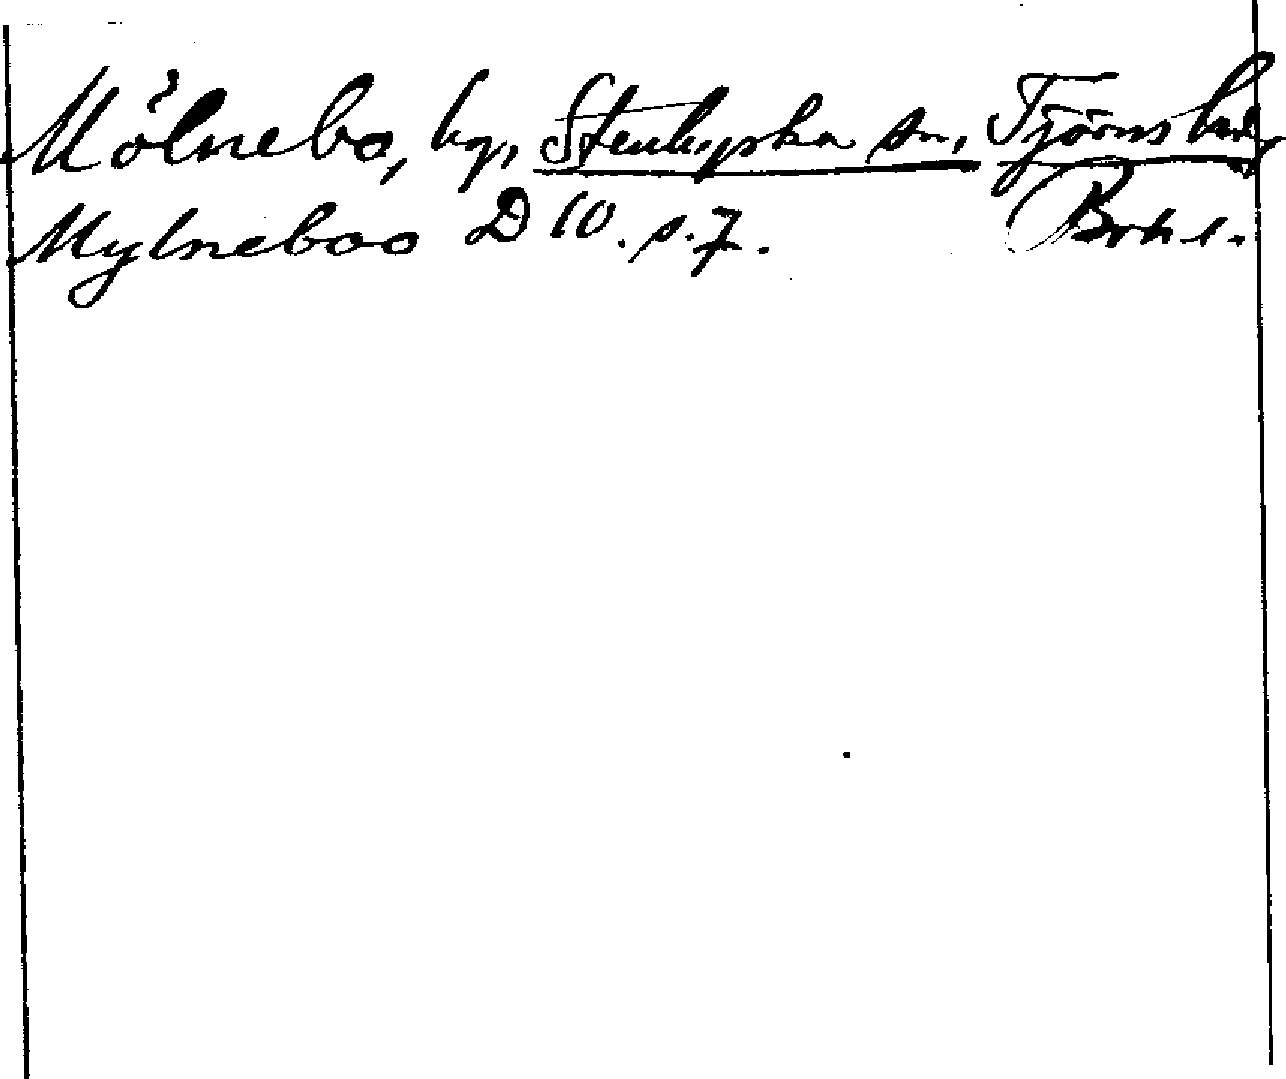 Mölnebo, hg, Stenkyrka sn, Tjörns hd,
Mylneboo D 10. s. 7. Bohl.